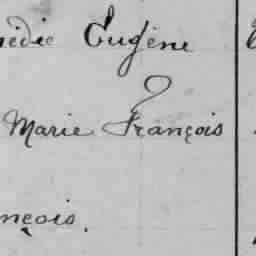 édie Eugène
Marie François
nçois.